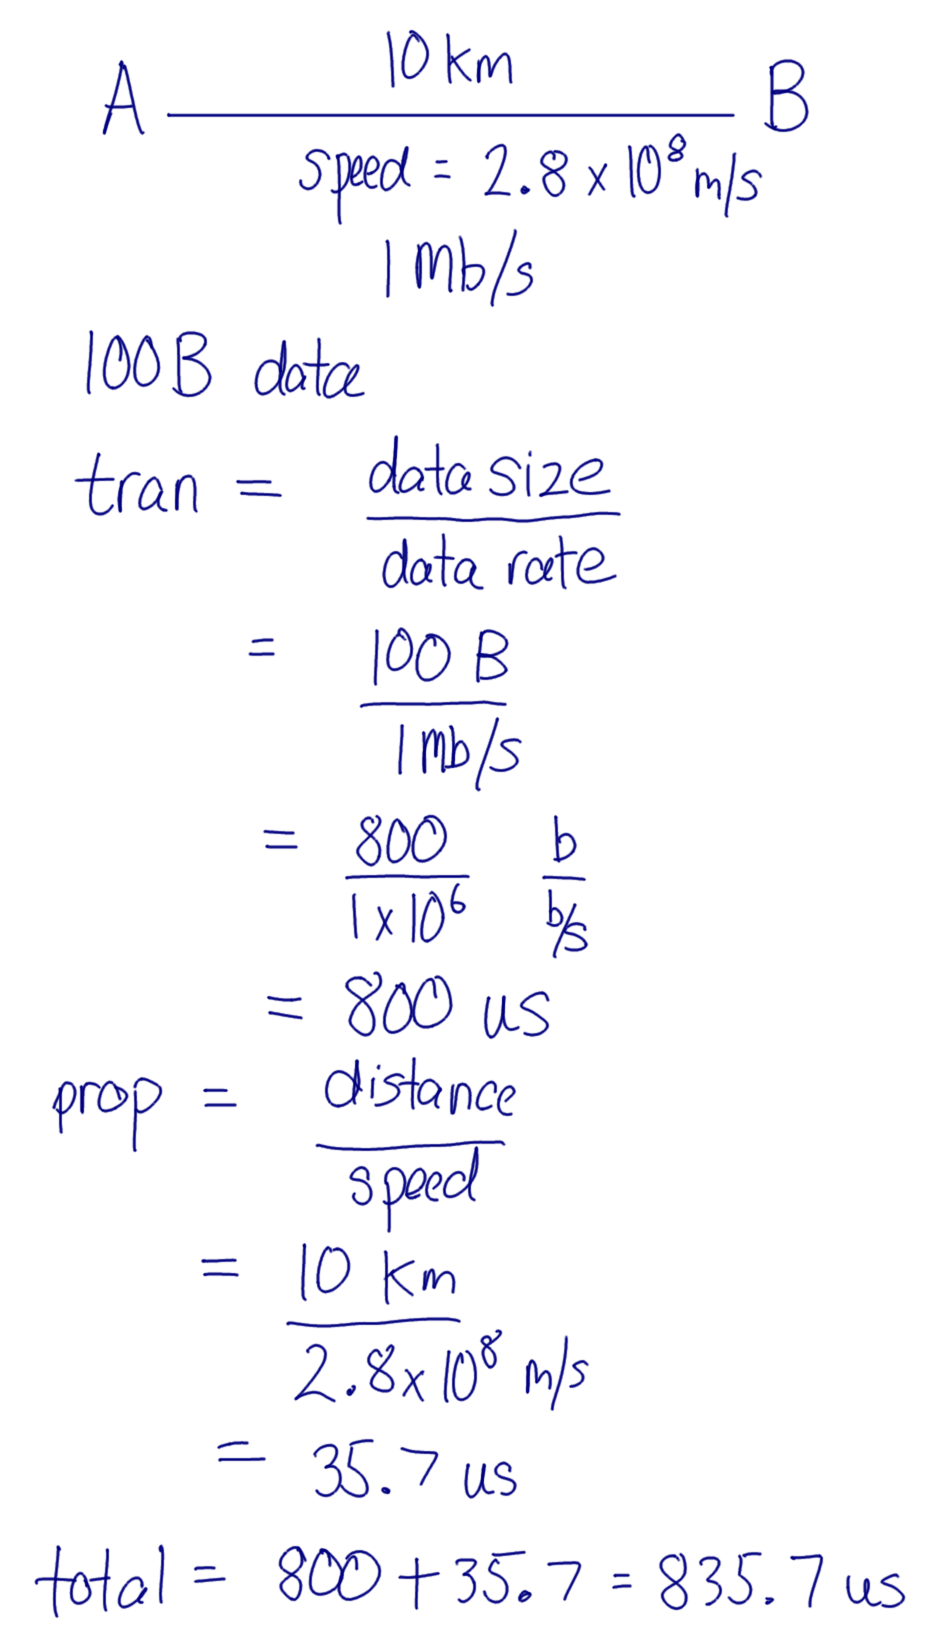 10 km
A B
speed = 2.8 x 10⁸ m/s
1 Mb/s
100B data
tran = data size
data rate
= 100 B
1 Mb/s
= 800 b
1 x 10⁶ b/s
= 800 us
prop = distance
speed
= 10 km
2.8 x 10⁸ m/s
= 35.7 us
total = 800 + 35.7 = 835.7 us